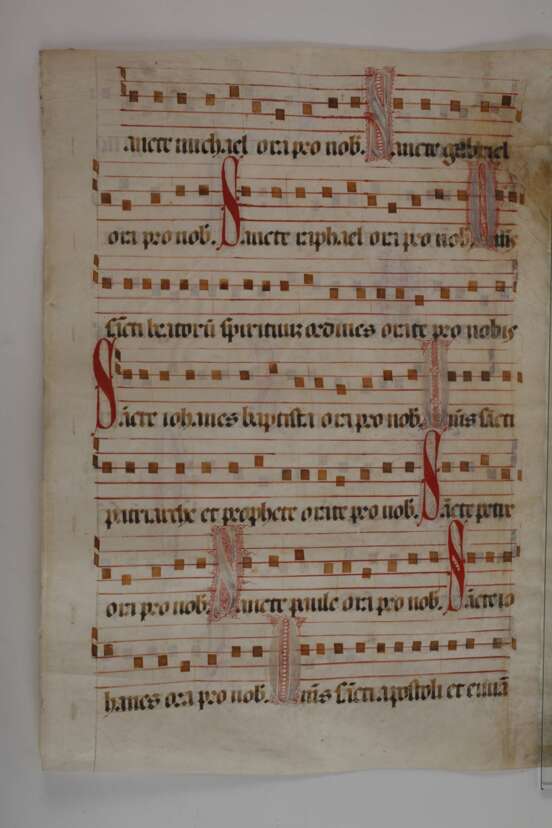 ancte michael ora pro nob. Sancte gabriel
ora pro nob. Sancte raphael ora pro nob. Om̄s
sc̄ti beatorū spirituum ordines orate pro nobis
Sācte iohanes baptista ora pro nob. Om̄s sācti
patriarche et prophete orate pro nob. Sācte petre
ora pro nob. Sancte paule ora pro nob. Sācte io
hanes ora pro nob. Om̄s sācti apostoli et euuā